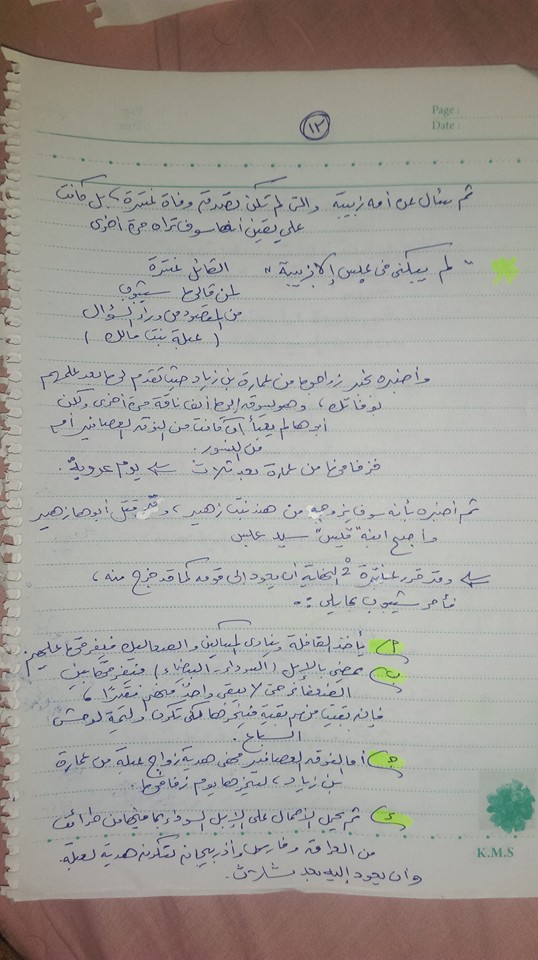 Page :
Date :
١٢
ثم سأل عن أمه زبيبة والتي لم تكن تصدق وفاة عنترة ، بل كانت
على يقين أنها سوف تراه مرة أخرى
" لم يبكني في عبس إلا زبيبة " القائل عنترة
لمن قالها شيبوب
من المقصود من وراء السؤال
( عبلة بنت مالك )
وأخبره بخبر زواجها من عمارة بن زياد حيث تقدم لها بعد علمهم
بوفاتك ، وهو يسوق إليها ألف ناقة مرة أخرى ولكن
أبوها لم يعبأ إن كانت من النوق العصافير أم
من النسور .
فزفافها من عمارة بعد ثلاث ← يوم عروبة .
ثم أخبره بأنه سوف يزوجه من هند بنت زهير ، وقد قتل أبوها زهير
وأصبح ابنه "قيس" سيد عبس
← وقد قرر عنترة في النهاية أن يعود إلى قومه كما قد خرج منه ،
فأمر شيبوب بما يلي :
أ) يأخذ القافلة وينادي المساكين والصعاليك فيفرقها عليهم
ب) يمضي بالإبل (السوداء - البيضاء) فتفرقها بين
الضعفاء حتى لا يبقى واحد منهم فقيرًا ،
فإن بقيت من بقية فينحرها لكي تكون وليمة لوحش
السباع .
ج) أما النوق العصافير فهي هدية زواج عبلة من عمارة
بن زياد ، لينحرها يوم زفافها .
د) ثم يحمل الأحمال على الإبل السوداء بما فيها من طرائف
من العراق وفارس وأذربيجان لتكون هدية لعبلة
وأن يعود إليه بعد ثلاث .
K.M.S